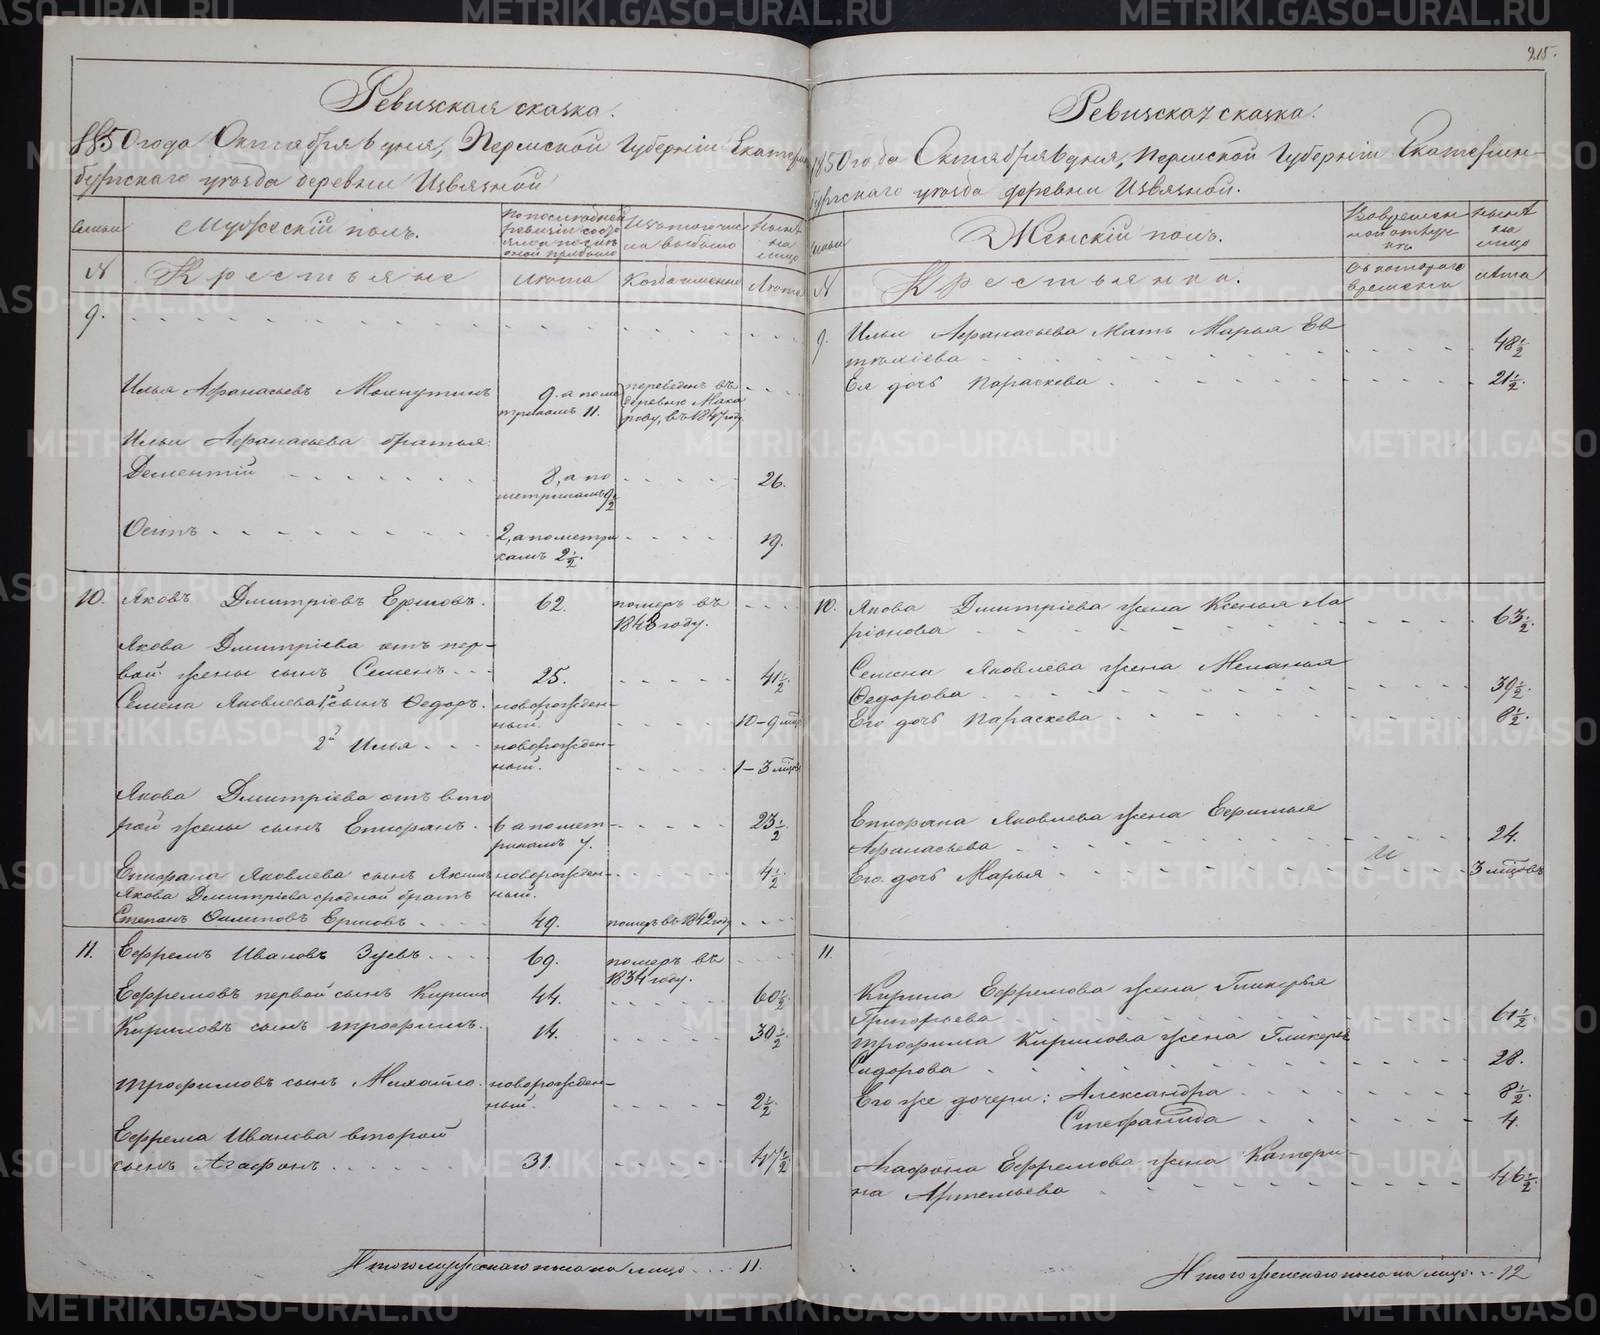 Ревизская сказка.
1850 года Октября 6 дня, Пермской Губерніи Екатерин
бургскаго уезда деревни Извязной
семьи
Мужескій полъ.
По последней ревизіи состояло и после оной прибыло
Изъ того числа выбыло
Ныне на лицо
№ Крестьяне лета Когда именно Лета
9.
Илья Афанасьевъ Мокнутинъ 9. а по метрикамъ 11. переведенъ въ деревню Макарову, въ 1847 году
Ильи Афанасьева братья:
Дементій 8, а по метрикамъ 9½ 26.
Осипъ 2, а по метрикамъ 2½. 19.
10. Яковъ Дмитріевъ Ершовъ. 62. померъ въ 1848 году.
Якова Дмитріева отъ пер-
вой жены сынъ Семенъ 25. 41½.
Семена Яковлева 1й сынъ Федоръ. новорожденный. 10-9 мцов
2й Илья новорожденный. 1-3 мцов
Якова Дмитріева отъ вто
рой жены сынъ Епифанъ. 6 а по метрикамъ 7. 23½
Епифана Яковлева сынъ Якимъ новорожденный. 4½
Якова Дмитріева сродной братъ
Степанъ Филиповъ Ершовъ 49. померъ въ 1842 году
11. Ефремъ Ивановъ Зуевъ 69. померъ въ 1834 году.
Ефремовъ первой сынъ Кирило 44. 60½.
Кириловъ сынъ Трофимъ. 14. 30½
Трофимовъ сынъ Михайло. новорожденный. 2½
Ефрема Иванова второй
сынъ Агафонъ 31. 47½
Итого мужескаго пола на лицо 11.
215.
Ревизская сказка.
1850 года Октября 6 дня, Пермской Губерніи Екатерин-
бургскаго уезда деревни Извязной.
семьи
Женскій полъ.
Во временной отлучке
Ныне на лицо
№ Крестьянки. Съ котораго времени лета
9. Ильи Афанасьева Мать Марья Ев
тихіева 48½
Ея дочь Параскева 21½.
10. Якова Дмитріева жена Ксенья Ла
ріонова 63½.
Семена Яковлева жена Меланья
Федорова 39½.
Его дочь Параскева 8½.
Епифана Яковлева жена Ефимья
Афанасьева 24.
Его дочь Марья 3 мцовъ
11.
Кирила Ефремова жена Гликерья
Григорьева 61½.
Трофима Кирилова жена Гликерья
Сидорова 28.
Его же дочери: Александра 8½.
Стефанида 4.
Агафона Ефремова жена Катери-
на Артемьева 46½.
Итого женскаго пола на лицо 12
METRIKI.GASO-URAL.RU